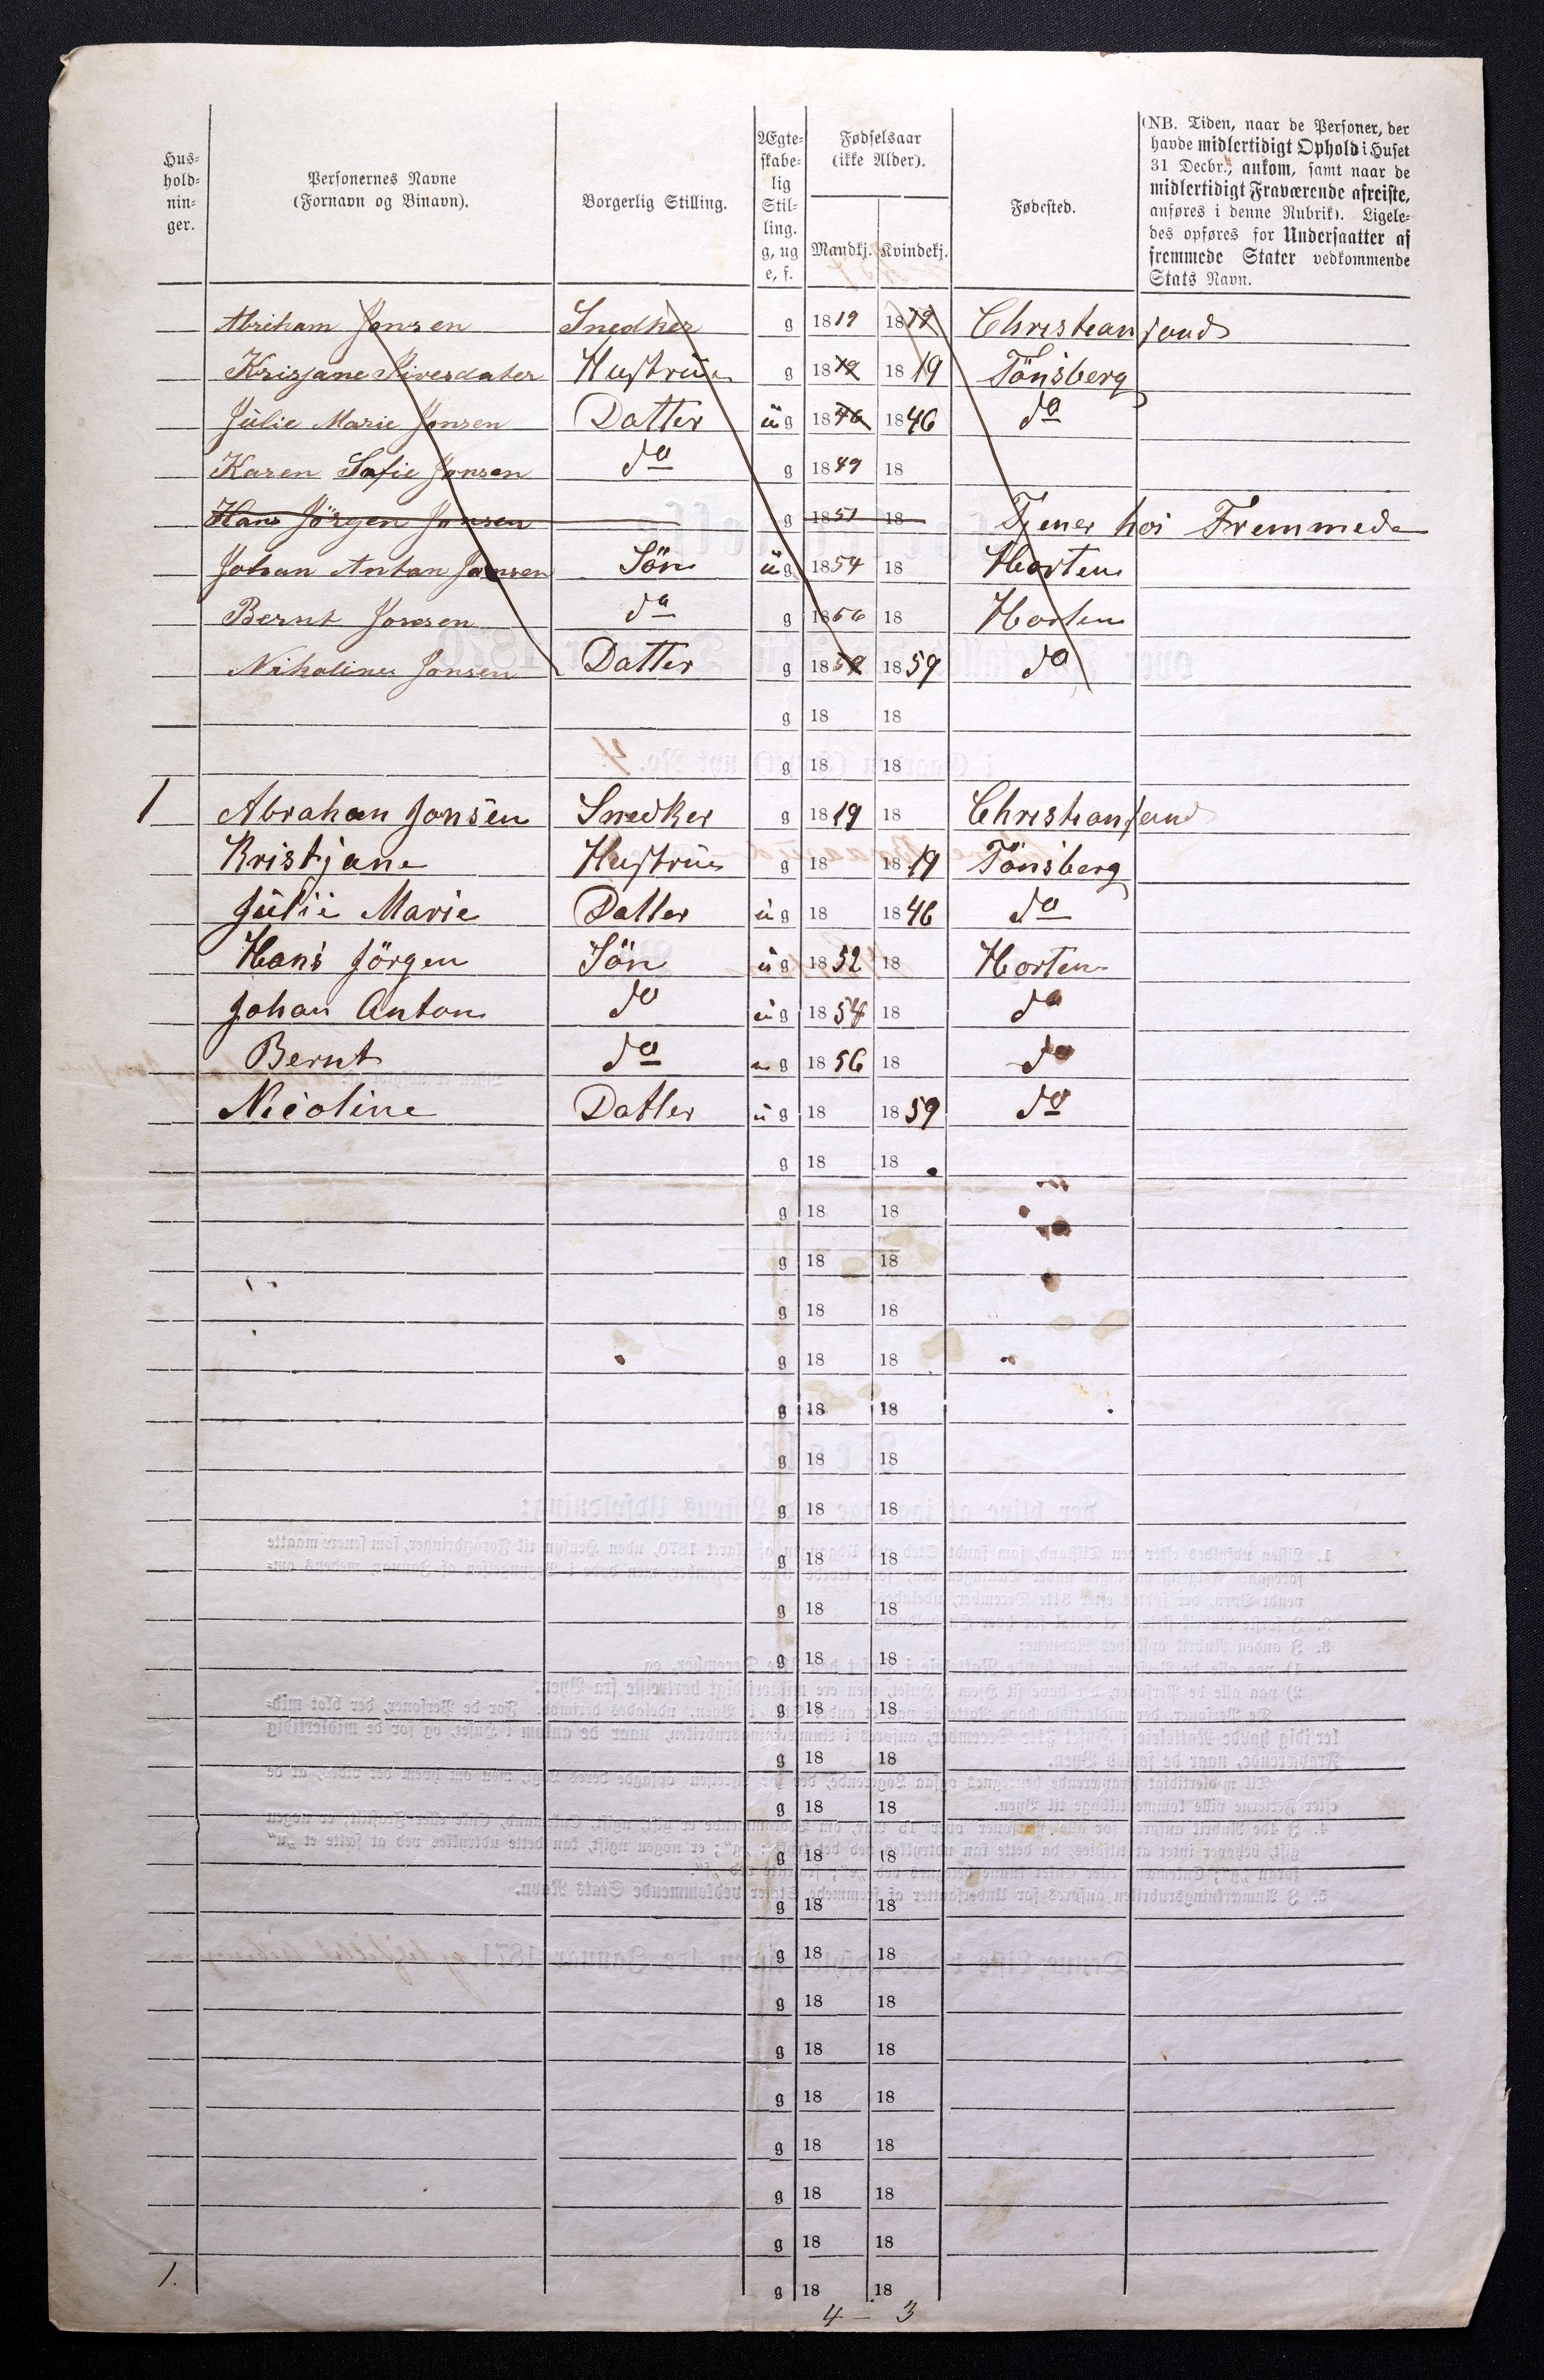 Hus-
hold-
nin-
ger.
Personernes Navne
(Fornavn og Binavn).
Borgerlig Stilling.
Ægte-
skabe-
lig
Stil-
ling.
g, ug
e, f.
Fødselsaar
(ikke Alder).
Mandkj. Kvindekj.
Fødested.
(NB. Tiden, naar de Personer, der
havde midlertidigt Ophold i Huset
31 Decbr., ankom, samt naar de
midlertidigt Fraværende afreiste,
anføres i denne Rubrik). Ligele-
des opføres for Undersaatter af
fremmede Stater vedkommende
Stats Navn.
Abriham Jonsen Snedker g 1819 1819 Christiansand
Krisjane Siversdater Hustrue g 1819 1819 Tönsberg
Julie Marie Jonsen Datter ug 1846 1846 do
Karen Sofie Jonsen do g 1849 18
Hans Jörgen Jonsen g 1851 18 Tjener hos Fremmede
Johan Anton Jonsen Sön ug 1854 18 Horten
Bernt Jonsen do g 1856 18 Horten
Nikoline Jonsen Datter g 1859 1859 do
g 18 18
g 18 18
1 Abraham Jonsen Snedker g 1819 18 Christiansand
Kristjane Hustrue g 18 1819 Tönsberg
Julie Marie Datter ug 18 1846 do
Hans Jörgen Sön ug 1852 18 Horten
Johan Anton do ug 1854 18 do
Bernt do ug 1856 18 do
Nicoline Datter ug 18 1859 do
g 18 18
g 18 18
g 18 18
g 18 18
g 18 18
g 18 18
g 18 18
g 18 18
g 18 18
g 18 18
g 18 18
g 18 18
g 18 18
g 18 18
g 18 18
g 18 18
g 18 18
g 18 18
g 18 18
g 18 18
g 18 18
g 18 18
g 18 18
1. g 18 18
4 - 3